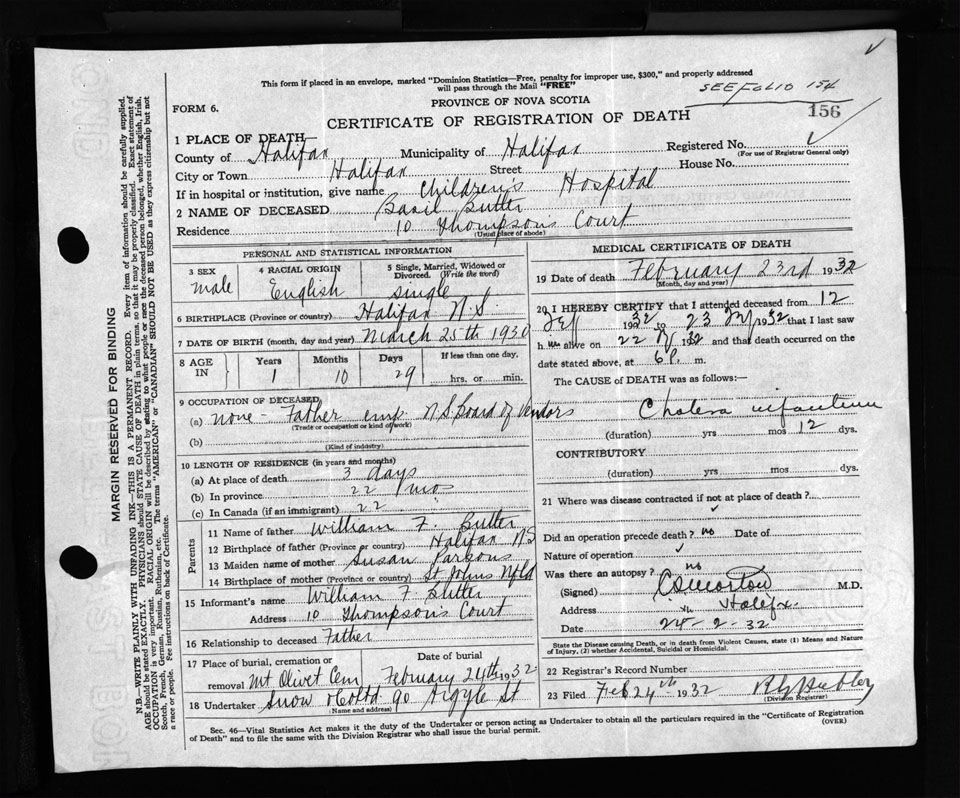 This form if placed in an envelope, marked "Dominion Statistics—Free, penalty for improper use, $300," and properly addressed
will pass through the Mail "FREE"
SEE FOLIO 154
PROVINCE OF NOVA SCOTIA
FORM 6.
156
CERTIFICATE OF REGISTRATION OF DEATH
MARGIN RESERVED FOR BINDING
N.B.—WRITE PLAINLY WITH UNFADING INK—THIS IS A PERMANENT RECORD. Every item of information should be carefully supplied.
AGE should be stated EXACTLY. PHYSICIANS should STATE CAUSE OF DEATH in plain terms, so that it may be properly classified. Exact statement of
OCCUPATION is very important. RACIAL ORIGIN will be described by stating to what people or race the deceased person belonged, whether English, Irish,
Scotch, French, German, Russian, Ruthenian, etc. The terms "AMERICAN" or "CANADIAN" SHOULD NOT BE USED as they express citizenship but not
a race or people. See instructions on back of Certificate.
1 PLACE OF DEATH—
County of Halifax Municipality of Halifax Registered No.
(For use of Registrar General only)
City or Town Halifax Street House No.
If in hospital or institution, give name Children's Hospital
2 NAME OF DECEASED Basil Butler
Residence 10 Thompsons Court
(Usual place of abode)
PERSONAL AND STATISTICAL INFORMATION
3 SEX 4 RACIAL ORIGIN 5 Single, Married, Widowed or Divorced. (Write the word)
male English single
6 BIRTHPLACE (Province or country) Halifax N.S.
7 DATE OF BIRTH (month, day and year) March 25th 1930
8 AGE IN Years Months Days If less than one day,
1 10 29 hrs. or min.
9 OCCUPATION OF DECEASED
(a) none - Father emp. N.S. Board of Vendors
(Trade or occupation or kind of work)
(b)
(Kind of industry)
10 LENGTH OF RESIDENCE (in years and months)
(a) At place of death 3 days
(b) In province 22 mos
(c) In Canada (if an immigrant) 22
Parents
11 Name of father William F. Butler
12 Birthplace of father (Province or country) Halifax NS
13 Maiden name of mother Susan Parsons
14 Birthplace of mother (Province or country) St Johns Nfld
15 Informant's name William F Butler
Address 10 Thompson's Court
16 Relationship to deceased Father
17 Place of burial, cremation or removal Mt Olivet Cem Date of burial February 24th 1932
18 Undertaker Snow & Co Ltd 90 Argyle St
(Name and address)
MEDICAL CERTIFICATE OF DEATH
19 Date of death February 23rd 1932
(Month, day and year)
20 I HEREBY CERTIFY that I attended deceased from 12
Feb 1932 to 23 Feb 1932 that I last saw
h im alive on 22 1932 and that death occurred on the
date stated above, at 6 P. m.
The CAUSE OF DEATH was as follows:—
Cholera infantum
(duration) yrs mos 12 dys.
CONTRIBUTORY
(duration) yrs mos dys.
21 Where was disease contracted if not at place of death?
Did an operation precede death? no Date of
Nature of operation
Was there an autopsy? no
(Signed) M.D.
Address Halifx.
Date 24-2-32
State the Disease causing Death, or in death from Violent Causes, state (1) Means and Nature
of Injury, (2) whether Accidental, Suicidal or Homicidal.
22 Registrar's Record Number
23 Filed Feb 24th 1932
(Division Registrar)
Sec. 46—Vital Statistics Act makes it the duty of the Undertaker or person acting as Undertaker to obtain all the particulars required in the "Certificate of Registration
of Death" and to file the same with the Division Registrar who shall issue the burial permit.
(OVER)